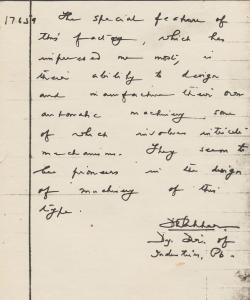 17659
The special feature of
this factory, which has
impressed me most, is
their ability to design
and manufacture their own
automatic machinery some
of which involves intricate
mechanisms. They seem to
be pioneers in the design
of machinery of this
type.
Dy. Dir. of
Industries, Pb.